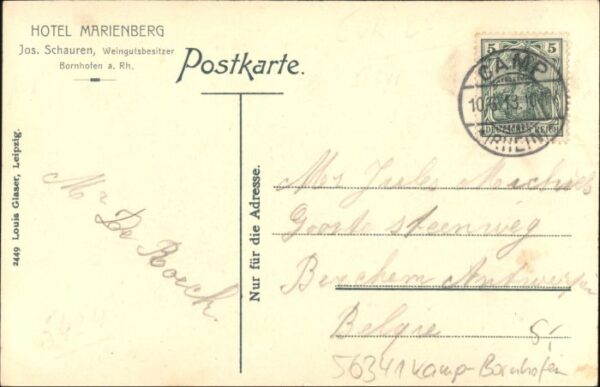 HOTEL MARIENBERG
Jos. Schauren, Weingutsbesitzer
Bornhofen a. Rh.
Postkarte.
5 5
CAMP
DEUTSCHES REICH
(RHEIN)
2449 Louis Glaser, Leipzig.
Nur für die Adresse.
Mr De Roeck
Mr Jules
Groote steenweg
Berchem Antwerpen
Belgie
56341 Kamp-Bornhofen